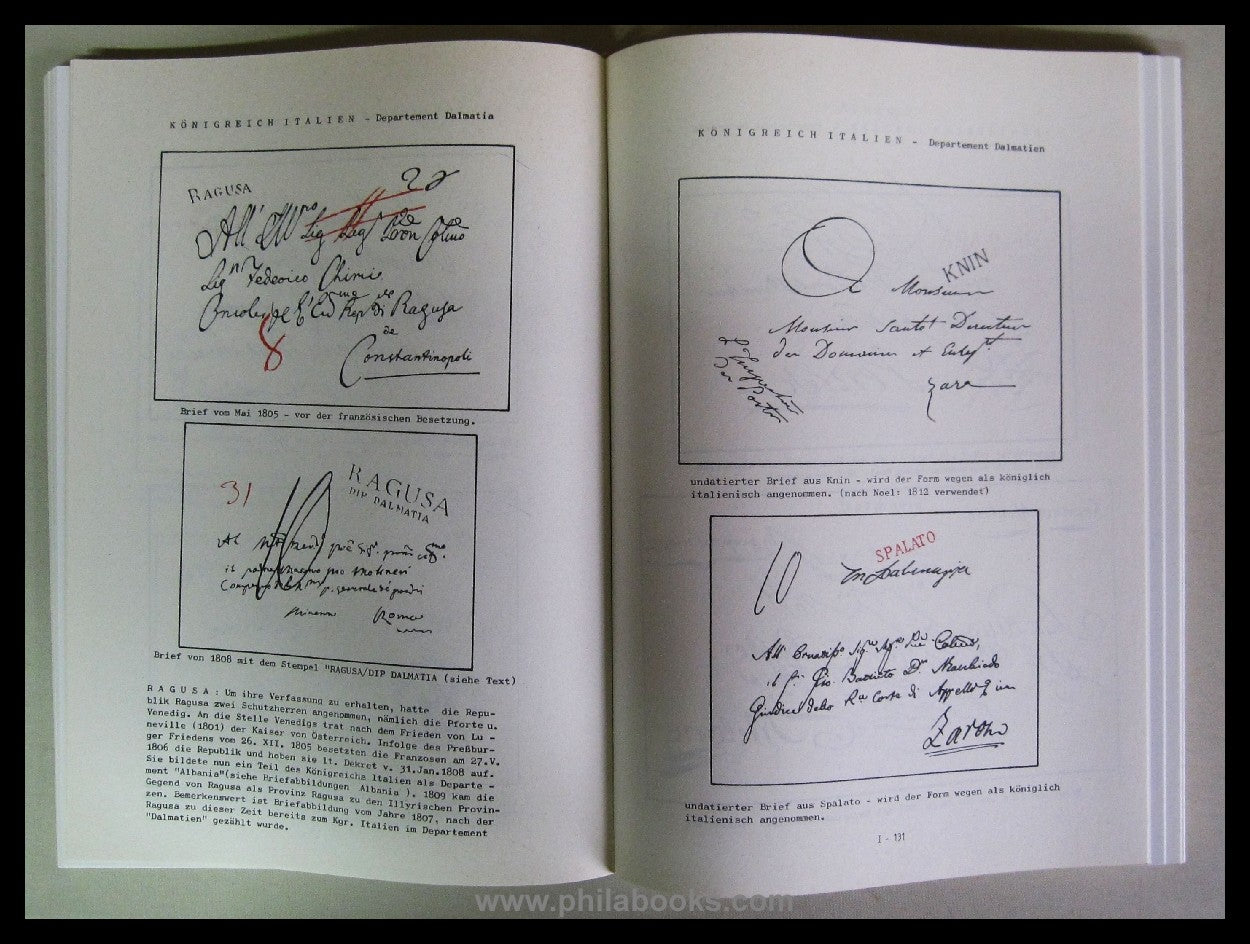 KÖNIGREICH ITALIEN - Departement Dalmatia
RAGUSA
Federico Chirico
di Ragusa
8
Constantinopoli
Brief vom Mai 1805 - vor der französischen Besetzung.
31
RAGUSA
DIP DALMATIA
Roma
Brief von 1808 mit dem Stempel "RAGUSA/DIP DALMATIA (siehe Text)
RAGUSA: Um ihre Verfassung zu erhalten, hatte die Repu-
blik Ragusa zwei Schutzherren angenommen, nämlich die Pforte u.
Venedig. An die Stelle Venedigs trat nach dem Frieden von Lu -
neville (1801) der Kaiser von Österreich. Infolge des Preßbur-
ger Friedens vom 26. XII. 1805 besetzten die Franzosen am 27.V.
1806 die Republik und hoben sie lt. Dekret v. 31.Jan.1808 auf.
Sie bildete nun ein Teil des Königreichs Italien als Departe -
ment "Albania"(siehe Briefabbildungen Albania ). 1809 kam die
Gegend von Ragusa als Provinz Ragusa zu den Illyrischen Provin-
zen. Bemerkenswert ist Briefabbildung vom Jahre 1807, nach der
Ragusa zu dieser Zeit bereits zum Kgr. Italien im Departement
"Dalmatien" gezählt wurde.
KÖNIGREICH ITALIEN - Departement Dalmatien
KNIN
Monsieur
Monsieur Santot Directeur
des Domaines et
Zara
undatierter Brief aus Knin - wird der Form wegen als königlich
italienisch angenommen. (nach Noel: 1812 verwendet)
10
SPALATO
In Dalmazia
Corte di Appello
undatierter Brief aus Spalato - wird der Form wegen als königlich
italienisch angenommen.
I - 131
www.philabooks.com